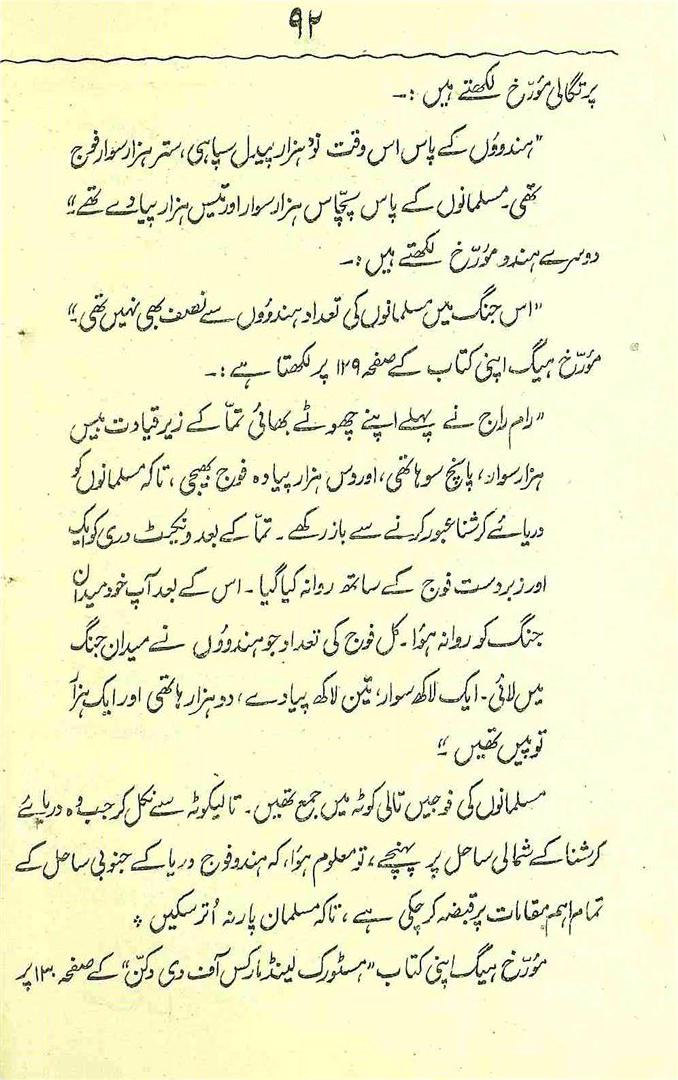 ۹۲
پرتگالی مؤرّخ لکھتے ہیں :۔
"ہندوؤں کے پاس اس وقت نوّ ہزار پیدل سپاہی، ستر ہزار سوار فوج
تھی۔ مسلمانوں کے پاس پچّاس ہزار سوار اور تیس ہزار پیادے تھے"
دوسرے ہندو مؤرّخ لکھتے ہیں :۔
"اس جنگ میں مسلمانوں کی تعداد ہندوؤں سے نصف بھی نہیں تھی۔"
مؤرّخ ہیگ اپنی کتاب کے صفحہ ۱۲۹ پر لکھتا ہے :۔
"رام راج نے پہلے اپنے چھوٹے بھائی تماّ کے زیر قیادت بیس
ہزار سوار، پانچ سو ہاتھی، اور دس ہزار پیادہ فوج بھیجی، تاکہ مسلمانوں کو
دریائے کرشنا عبور کرنے سے باز رکھے۔ تماّ کے بعد ونیکٹ دری کو ایک
اور زبردست فوج کے ساتھ روانہ کیا گیا۔ اس کے بعد آپ خود میدان
جنگ کو روانہ ہؤا۔ کل فوج کی تعداد جو ہندوؤں نے میدان جنگ
میں لائی۔ ایک لاکھ سوار، تین لاکھ پیادے، دو ہزار ہاتھی اور ایک ہزار
توپیں تھیں۔"
مسلمانوں کی فوجیں تالی کوٹہ میں جمع تھیں۔ تالیکوٹہ سے نکل کر جب وہ دریائے
کرشنا کے شمالی ساحل پر پہنچے، تو معلوم ہؤا، کہ ہندو فوج دریا کے جنوبی ساحل کے
تمام اہم مقامات پر قبضہ کر چکی ہے، تاکہ مسلمان پار نہ اُتر سکیں ٭
مؤرّخ ہیگ اپنی کتاب "ہسٹورک لینڈ مارکس آف دی دکن" کے صفحہ ۱۳۰ پر